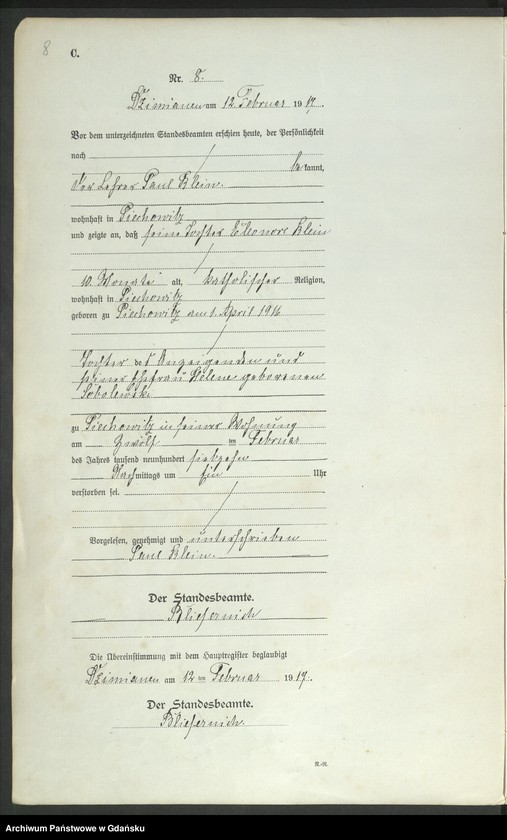 8
C.
Nr. 8.
Dzimianen am 12 Februar 1917.
Vor dem unterzeichneten Standesbeamten erschien heute, der Persönlichkeit
nach
bekannt,
der Lehrer Paul Klein.
wohnhaft in Piechowitz
und zeigte an, daß seine Tochter Eleonore Klein
10 Monate alt, katholischer Religion,
wohnhaft in Piechowitz
geboren zu Piechowitz am 1. April 1916
Tochter des Anzeigenden und
seiner Ehefrau Helene geborenen
Sobolewski
zu Piechowitz in seiner Wohnung
am Zwölf ten Februar
des Jahres tausend neunhundert siebzehn
Nachmittags um ein Uhr
verstorben sei.
Vorgelesen, genehmigt und unterschrieben
Paul Klein.
Der Standesbeamte.
Bliesernich
Die Übereinstimmung mit dem Hauptregister beglaubigt
Dzimianen am 12 ten Februar 1917.
Der Standesbeamte.
Bliesernich.
R.-R.
Archiwum Państwowe w Gdańsku